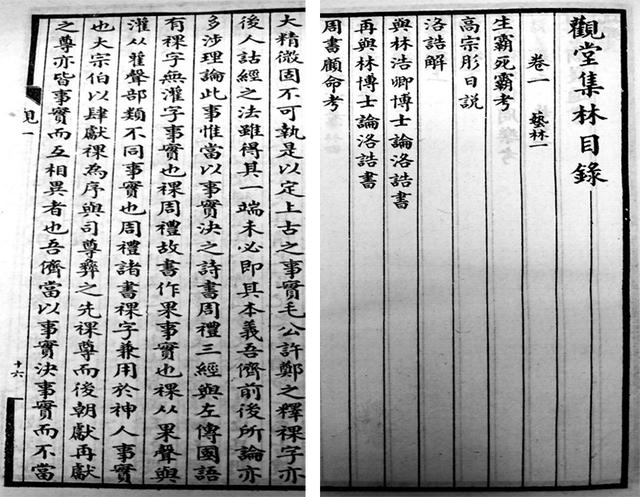 觀堂集林目錄
卷一 藝林一
生霸死霸考
高宗肜日説
洛誥解
與林浩卿博士論洛誥書
再與林博士論洛誥書
周書顧命考
大精微固不可執是以定上古之事實毛公許鄭之釋祼字亦
後人詁經之法雖得其一端未必即其本義吾儕前後所論亦
多涉理論此事惟當以事實決之詩書周禮三經與左傳國語
有祼字無灌字事實也祼周禮故書作果事實也祼从果聲與
灌从雚聲部類不同事實也周禮諸書祼字兼用於神人事實
也大宗伯以肆獻祼為序與司尊彝之先祼尊而後朝獻再獻
之尊亦皆事實而互相異者也吾儕當以事實決事實而不當
十六